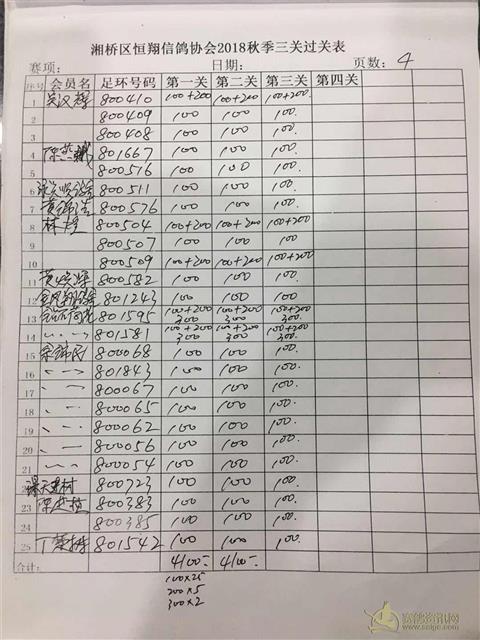 湘桥区恒翔信鸽协会2018秋季三关过关表
赛项： 日期： 页数：4
序号 会员名 足环号码 第一关 第二关 第三关 第四关
1 吴汉辉 800410 100+200 100+200 100+200
2 800409 100 100 100
3 800408 100 100 100
4 801667 100 100 100
5 800516 100 100 100
6 800511 100 100 100
7 800576 100 100 100
8 林 800504 100+200 100+200 100+200
9 800507 100 100 100
10 800509 100+200 100+200 100+200
11 黄 800582 100 100 100
12 801243 100 100 100
13 801595 100+200 300 100+200 300 100+200 300
14 801581 100+200 300 100+200 300 100+200 300
15 800068 100 100 100
16 801843 100 100 100
17 800067 100 100 100
18 800065 100 100 100
19 800062 100 100 100
20 800056 100 100 100
21 800054 100 100 100
800723 100 100 100
23 800383 100 100 100
24 800385 100 100 100
25 801542 100 100 100
合计： 4100 4100
100×25
200×5
300×2
赛鸽资讯网
www.saige.com